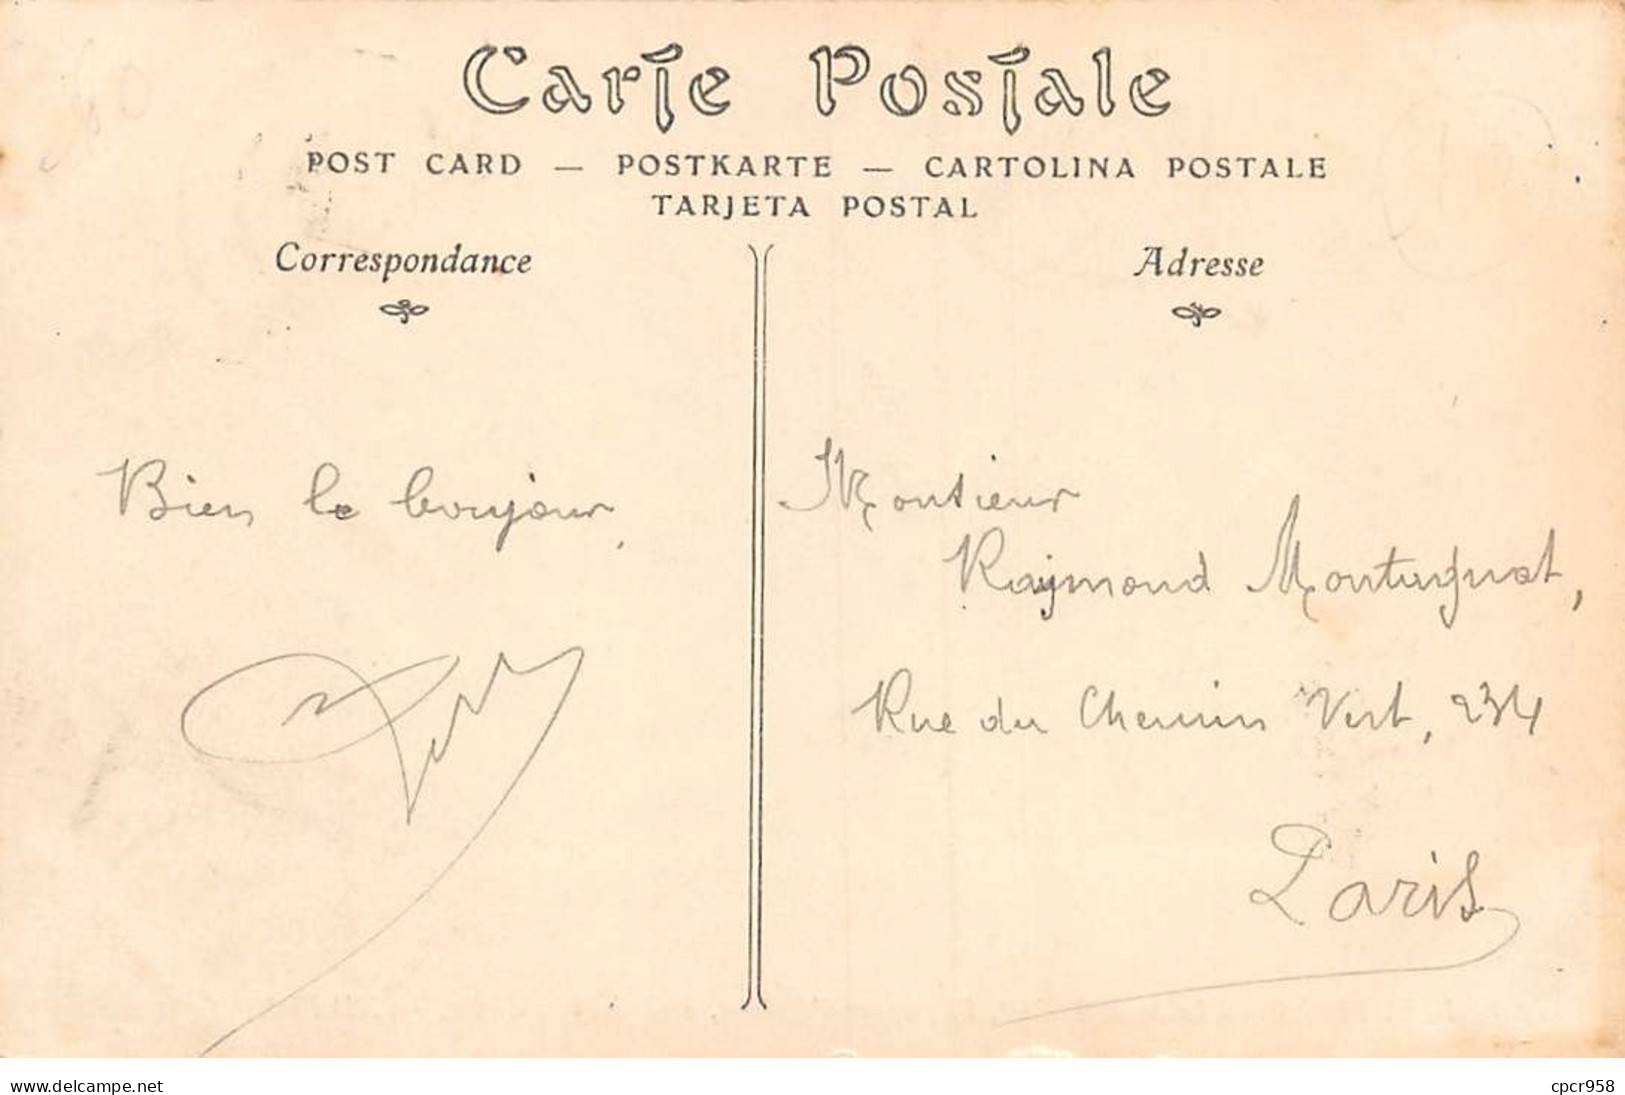 Carte Postale
POST CARD — POSTKARTE — CARTOLINA POSTALE
TARJETA POSTAL
Correspondance
Adresse
Bien le bonjour,
Monsieur
Raymond Montugnat,
Rue du Chemin Vert, 234
Paris
www.delcampe.net
cpcr958